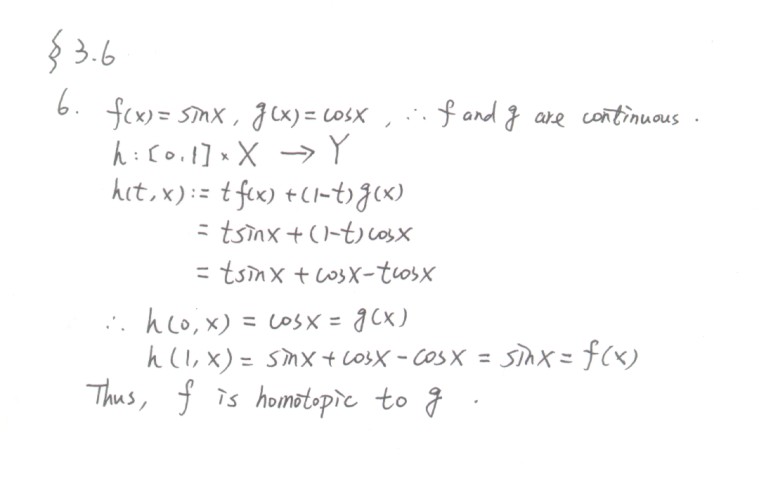 § 3.6
6. f(x) = sinx, g(x) = cosx, ∴ f and g are continuous.
h : [0,1] × X → Y
h(t, x) := t f(x) + (1-t) g(x)
= tsinx + (1-t) cosx
= tsinx + cosx - tcosx
∴ h(0, x) = cosx = g(x)
h(1, x) = sinx + cosx - cosx = sinx = f(x)
Thus, f is homotopic to g .